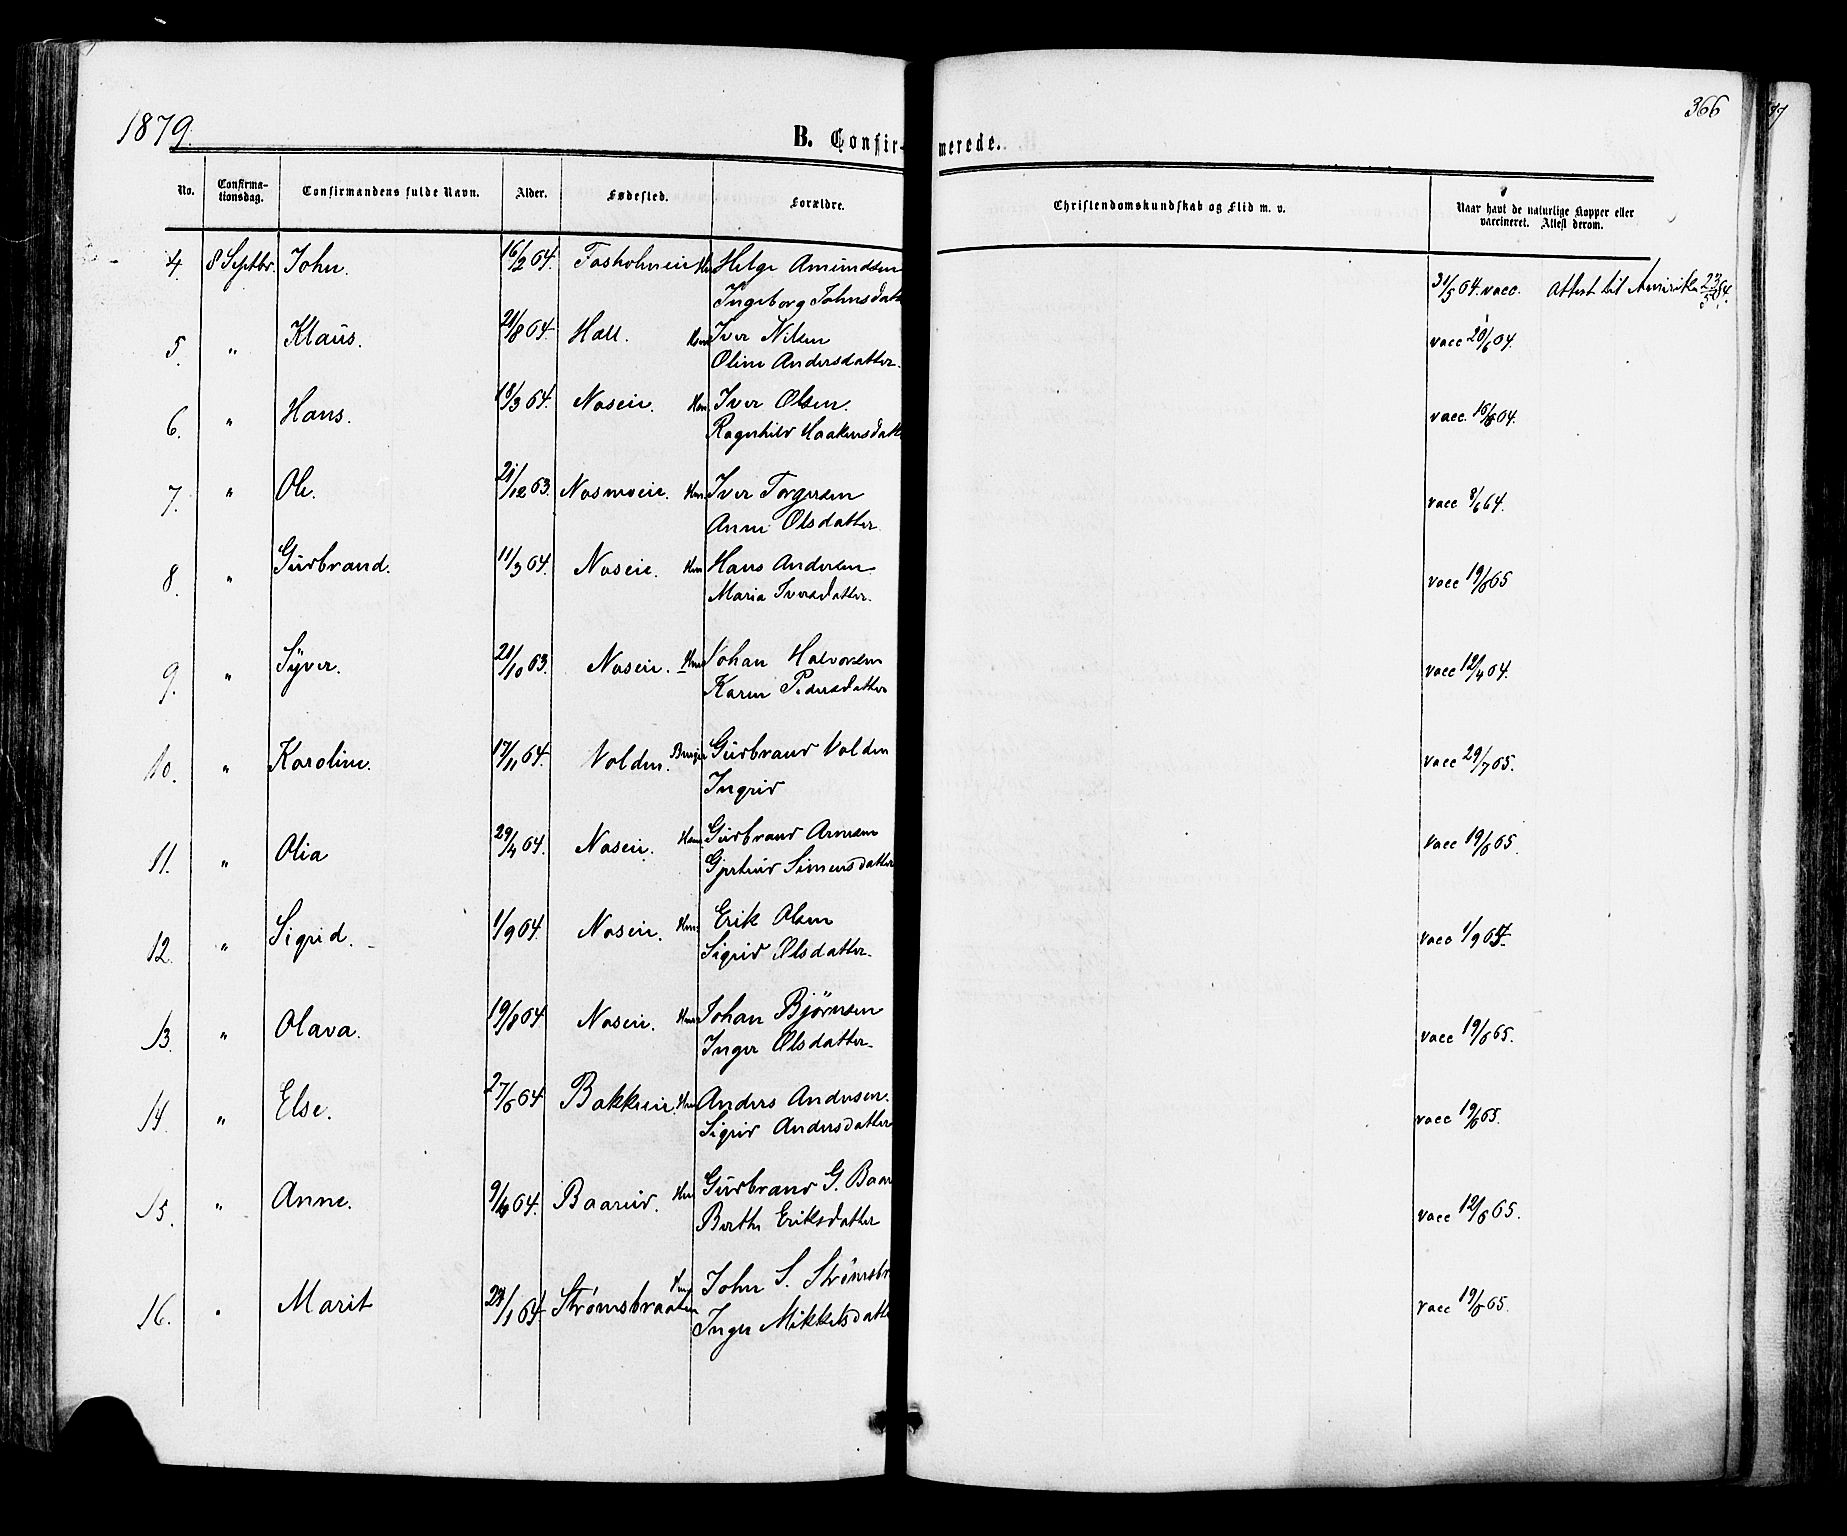 1879.
B. Confirmerede.
366
No. Confirmationsdag. Confirmandens fulde Navn. Alder. Fødested. Forældre. Christendomskundskab og Flid m. v. Naar havt de naturlige Kopper eller vaccineret. Attest derom.
4 8 Septbr. John. 16/2 64. Helge Amundsen
Ingeborg Johnsdatt
31/5 64. vacc. Attest til Amerika 23/5 84.
5. " Klaus. 21/8 64. Hall. Iver Nilsen
Oline Andersdatter.
6. " Hans. 18/3 64. Noseie. Iver Olsen.
Ragnhild Haakensdatt
7. " Ole. 21/12 63. Nosmoeie. Iver Torgersen
Anne Olsdatter.
vacc 8/6 64.
8. " Gudbrand. 11/3 64. Noseie. Hans Andersen
Maria Iversdatter.
vacc 19/6 65
9. " Syver. 21/10 63. Noseie. Johan Halvorsen
Karen Pedersdatter
vacc 12/4 64.
10. " Karoline. 17/11 64. Volden. Gudbrand Volden
Ingrid
vacc 29/7 65.
11. " Olia 29/4 64. Noseie. Gudbrand Arnesen
Gjertrud Simensdatter
vacc 19/6 65.
12. " Sigrid. 1/9 64. Noseie. Erik Olsen
Sigrid Olsdatter.
vacc 1/9
13. " Olava. 19/8 64 Noseie. Johan Bjørnsen
Inger Olsdatter.
vacc 19/6 65.
14. " Else. 27/6 64 Bakkeeie. Anders Andersen.
Sigrid Andersdatter
vacc 19/6 65.
15. " Anne. 64. Gudbrand G. Baar
Berthe Eriksdatter
vacc 12/6 65.
16. " Marit 64. Strømsbraaten John S. Strømsbr
Inger Mikkelsdatt
vacc 19/6 65.